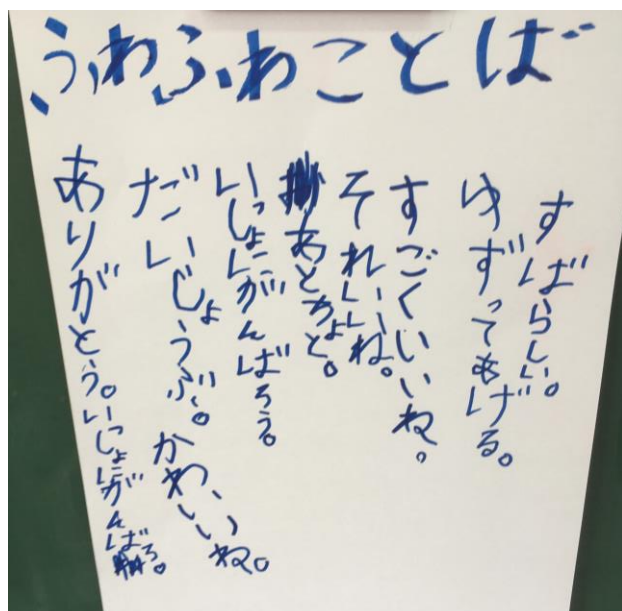 ふわふわことば
すばらしい。
ゆずってあげる。
すごくいいね。
それいいね。
あとちょと。
いっしょにがんばろう。
だいじょうぶ。かわいいね。
ありがとう。いしょにがんばろ。